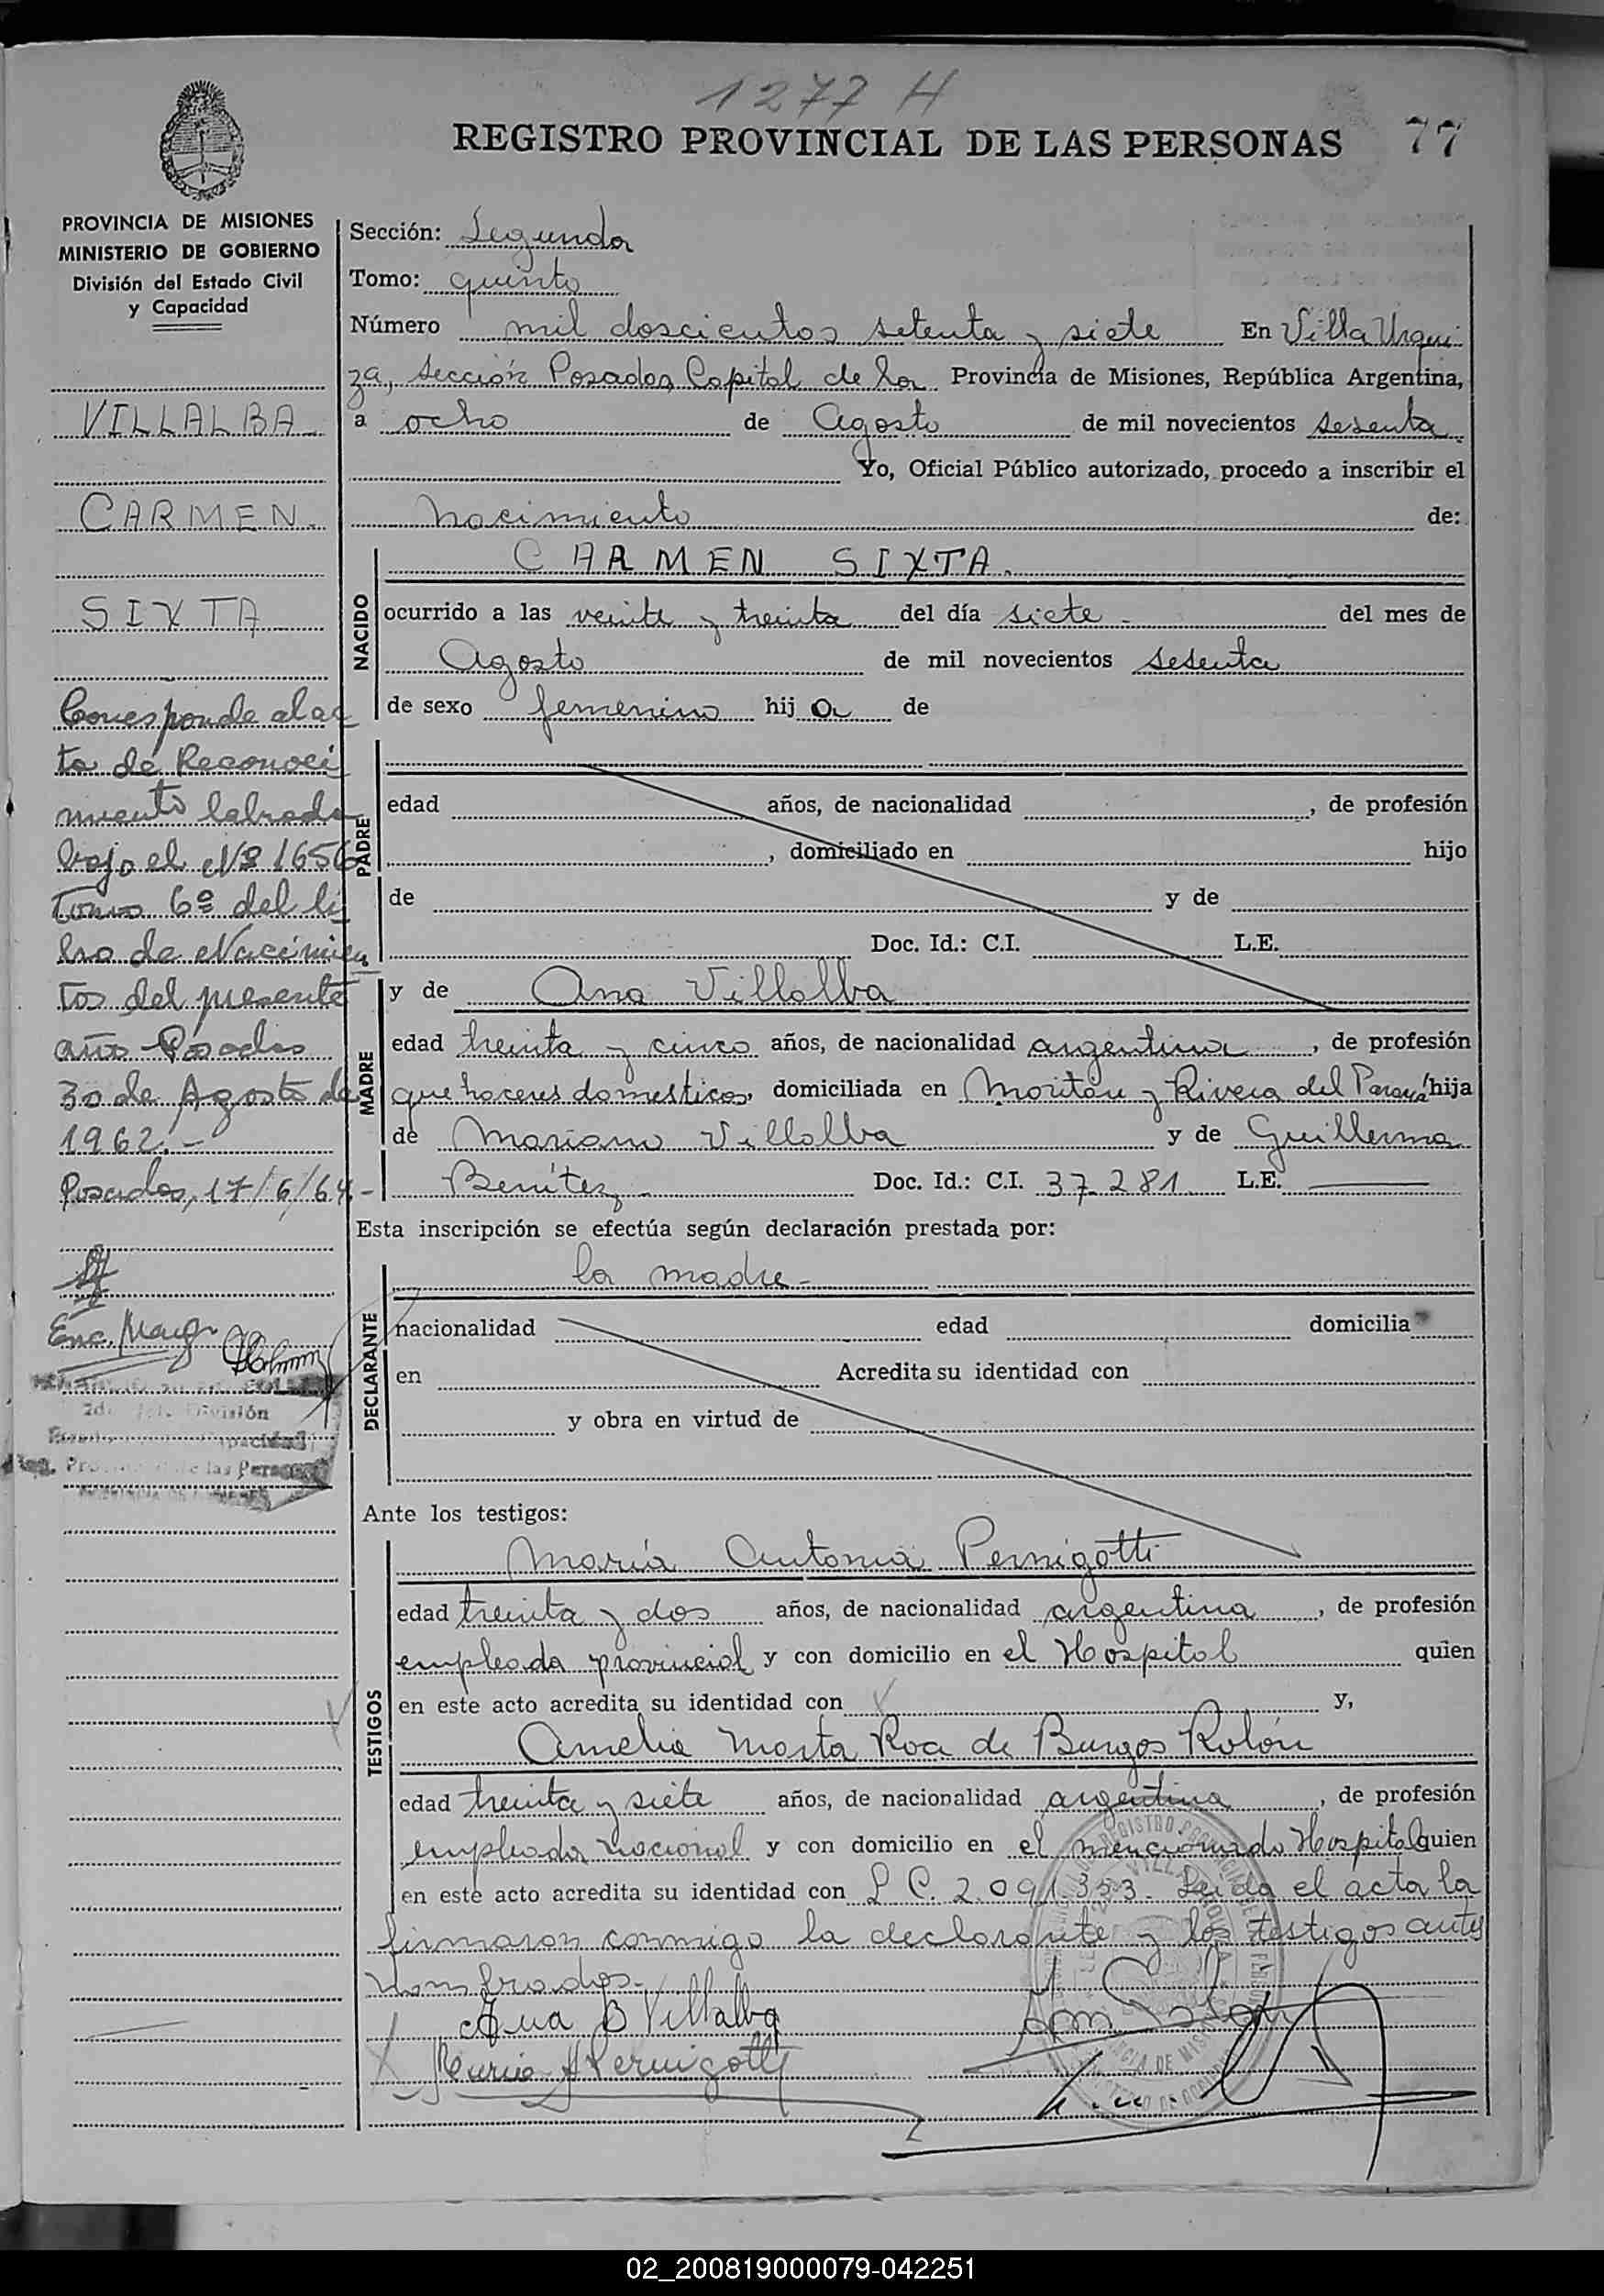 1277 H
REGISTRO PROVINCIAL DE LAS PERSONAS 77
PROVINCIA DE MISIONES
MINISTERIO DE GOBIERNO
División del Estado Civil
y Capacidad
VILLALBA
CARMEN
SIXTA
Corresponde al ac
ta de Reconoci
miento labrada
bajo el Nº 1656
Tomo 6º del li
bro de Nacimien
tos del presente
año Posadas
30 de Agosto de
1962.-
Posadas, 17/6/64-
2do Jef. División
Sección: Segunda
Tomo: quinto
Número mil doscientos setenta y siete En Villa Urqui
za, Sección Posadas Capital de la Provincia de Misiones, República Argentina,
a ocho de Agosto de mil novecientos sesenta
Yo, Oficial Público autorizado, procedo a inscribir el
nacimiento de:
NACIDO
CARMEN SIXTA.
ocurrido a las veinte y treinta del día siete - del mes de
Agosto de mil novecientos sesenta
de sexo femenino hij a de
PADRE
edad años, de nacionalidad , de profesión
, domiciliado en hijo
de y de
Doc. Id.: C.I. L.E.
MADRE
y de Ana Villalba
edad treinta y cinco años, de nacionalidad argentina , de profesión
que haceres domesticos, domiciliada en Moritán y Rivera del Paraná hija
de Mariano Villalba y de Guillerma
Benítez - Doc. Id.: C.I. 37281 L.E. —
Esta inscripción se efectúa según declaración prestada por:
DECLARANTE
la madre -
nacionalidad edad domicilia
en Acredita su identidad con
y obra en virtud de
Ante los testigos:
TESTIGOS
María Antonia Pernigotti
edad treinta y dos años, de nacionalidad argentina , de profesión
empleada provincial y con domicilio en el Hospital quien
en este acto acredita su identidad con y,
Amelia Marta Roa de Burgos Rolón
edad treinta y siete años, de nacionalidad argentina , de profesión
empleada nacional y con domicilio en el mencionado Hospital quien
en este acto acredita su identidad con L C. 2.091.353. Leida el acta la
firmaron conmigo la declarante y los testigos antes
nombrados.-
Ana B Villalba
Maria A Pernigotti
02_200819000079-042251